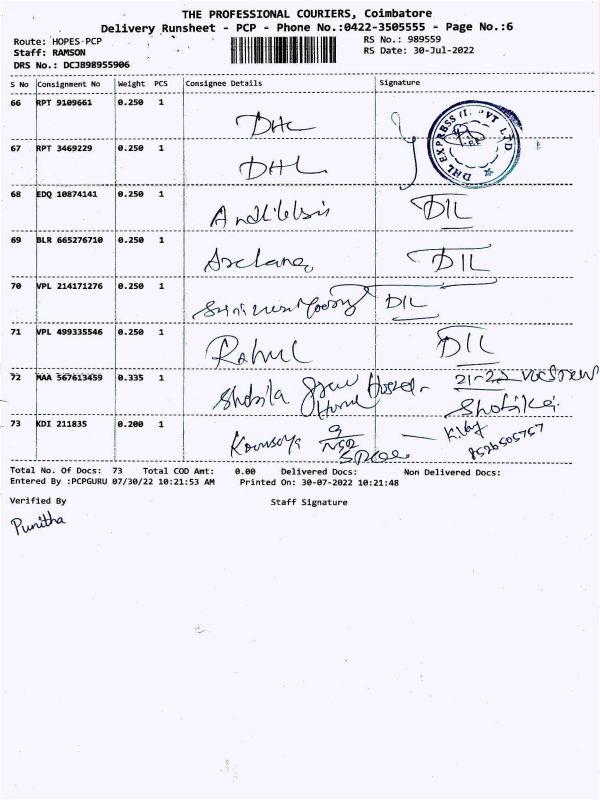 THE PROFESSIONAL COURIERS, Coimbatore
Delivery Runsheet - PCP - Phone No.:0422-3505555 - Page No.:6
Route: HOPES-PCP RS No.: 989559
Staff: RAMSON RS Date: 30-Jul-2022
DRS No.: DCJB98955906
S No Consignment No Weight PCS Consignee Details Signature
66 RPT 9109661 0.250 1 DHL
DHL EXPRESS (I) PVT LTD
67 RPT 3469229 0.250 1 DHL
68 EDQ 10874141 0.250 1 DIL
69 BLR 665276710 0.250 1 DIL
70 VPL 214171276 0.250 1 DIL
71 VPL 499335546 0.250 1 Rahul DIL
72 MAA 567613459 0.335 1
73 KDI 211835 0.200 1
Total No. Of Docs: 73 Total COD Amt: 0.00 Delivered Docs: Non Delivered Docs:
Entered By :PCPGURU 07/30/22 10:21:53 AM Printed On: 30-07-2022 10:21:48
Verified By Staff Signature
Punitha